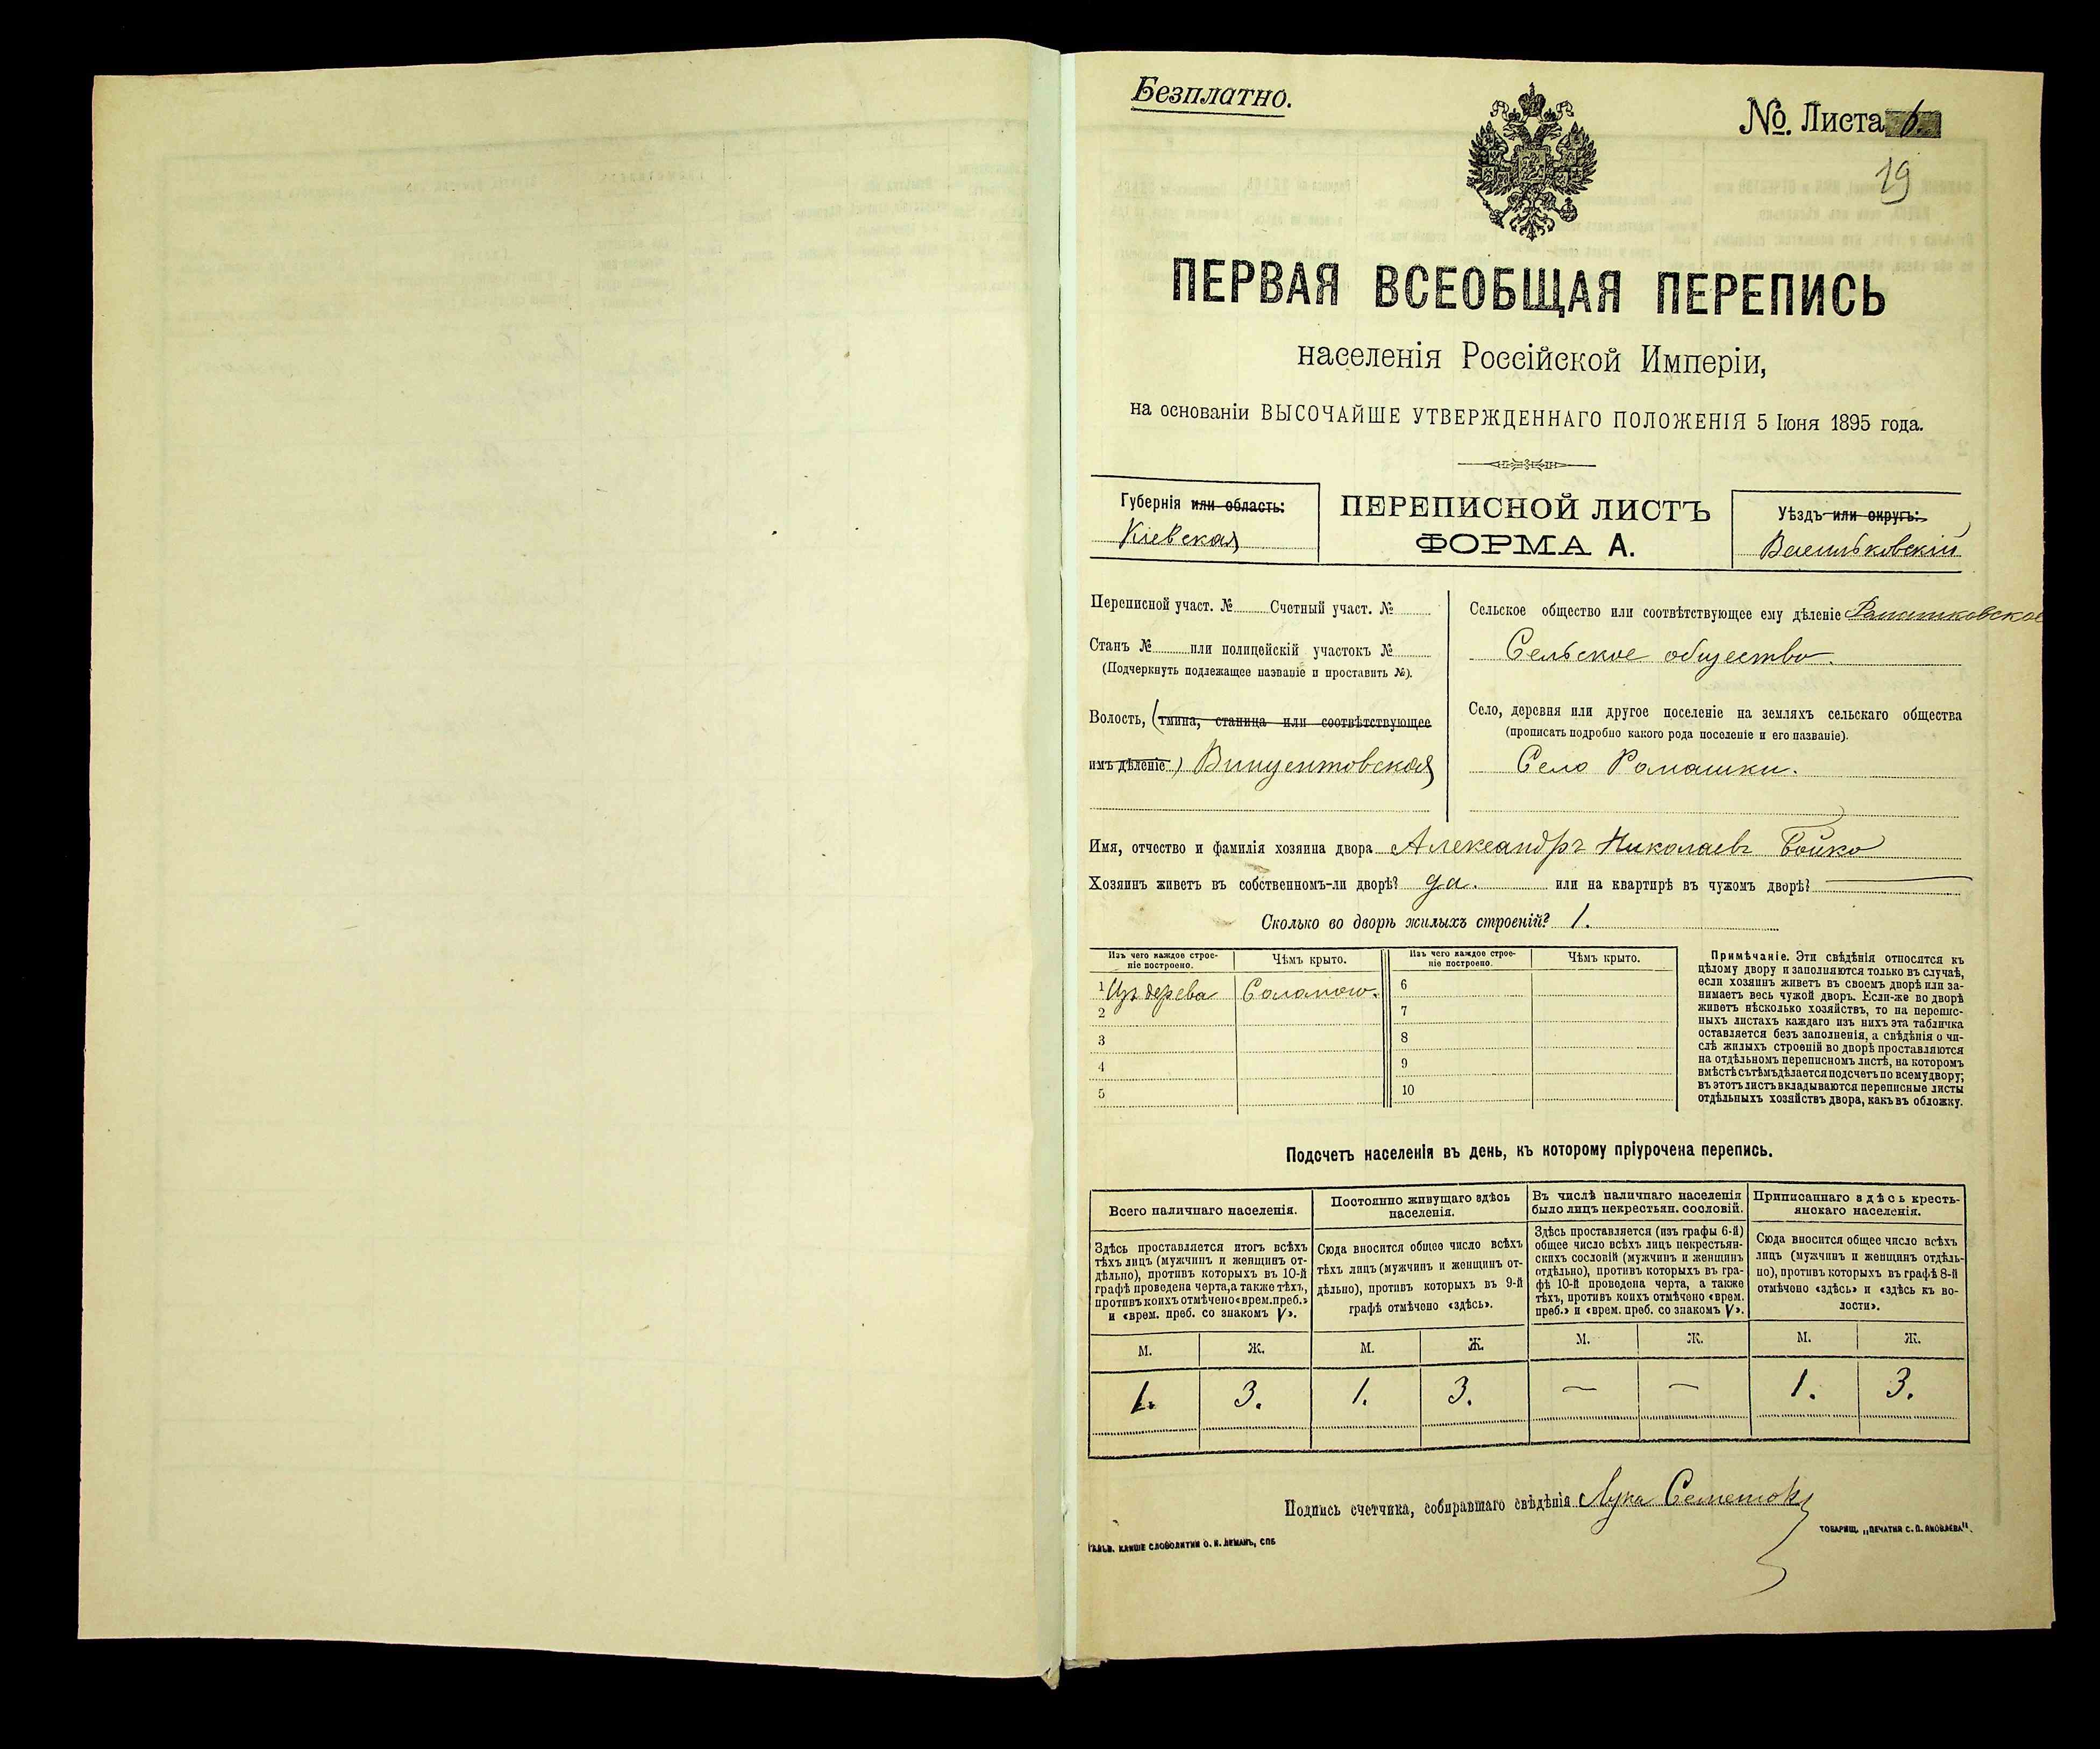 Безплатно.
№. Листа 6.
19
ПЕРВАЯ ВСЕОБЩАЯ ПЕРЕПИСЬ
населенія Россійской Имперіи,
на основаніи ВЫСОЧАЙШЕ УТВЕРЖДЕННАГО ПОЛОЖЕНІЯ 5 Іюня 1895 года.
Губернія или область:
Кіевская
ПЕРЕПИСНОЙ ЛИСТЪ
ФОРМА А.
Уѣздъ или округъ:
Васильковскій
Переписной участ. № Счетный участ. №
Станъ № или полицейскій участокъ №
(Подчеркнуть подлежащее названіе и проставить №).
Волость, (гмина, станица или соотвѣтствующее
имъ дѣленіе) Винцентовская
Сельское общество или соотвѣтствующее ему дѣленіе Ромашковское
Сельское общество.
Село, деревня или другое поселеніе на земляхъ сельскаго общества
(прописать подробно какого рода поселеніе и его названіе).
Село Ромашки.
Имя, отчество и фамилія хозяина двора Александръ Николаевъ Бойко
Хозяинъ живетъ въ собственномъ-ли дворѣ? да. или на квартирѣ въ чужомъ дворѣ?
Сколько во дворѣ жилыхъ строеній? 1.
Изъ чего каждое строе-
ніе построено.
Чѣмъ крыто.
Изъ чего каждое строе-
ніе построено.
Чѣмъ крыто.
1 Изъ дерева Соломою. 6
2 7
3 8
4 9
5 10
Примѣчаніе. Эти свѣдѣнія относятся къ
цѣлому двору и заполняются только въ случаѣ,
если хозяинъ живетъ въ своемъ дворѣ или за-
нимаетъ весь чужой дворъ. Если-же во дворѣ
живетъ нѣсколько хозяйствъ, то на перепис-
ныхъ листахъ каждаго изъ нихъ эта табличка
оставляется безъ заполненія, а свѣдѣнія о чи-
слѣ жилыхъ строеній во дворѣ проставляются
на отдѣльномъ переписномъ листѣ, на которомъ
вмѣстѣ съ тѣмъ дѣлается подсчетъ по всему двору;
въ этотъ листъ вкладываются переписные листы
отдѣльныхъ хозяйствъ двора, какъ въ обложку.
Подсчетъ населенія въ день, къ которому пріурочена перепись.
Всего наличнаго населенія.
Постоянно живущаго здѣсь
населенія.
Въ числѣ наличнаго населенія
было лицъ некрестьян. сословій.
Приписаннаго здѣсь кресть-
янскаго населенія.
Здѣсь проставляется итогъ всѣхъ
тѣхъ лицъ (мужчинъ и женщинъ от-
дѣльно), противъ которыхъ въ 10-й
графѣ проведена черта, а также тѣхъ,
противъ коихъ отмѣчено «врем. преб.»
и «врем. преб. со знакомъ V».
Сюда вносится общее число всѣхъ
тѣхъ лицъ (мужчинъ и женщинъ от-
дѣльно), противъ которыхъ въ 9-й
графѣ отмѣчено «здѣсь».
Здѣсь проставляется (изъ графы 6-й)
общее число всѣхъ лицъ некрестьян-
скихъ сословій (мужчинъ и женщинъ
отдѣльно), противъ которыхъ въ гра-
фѣ 10-й проведена черта, а также
тѣхъ, противъ коихъ отмѣчено «врем.
преб.» и «врем. преб. со знакомъ V».
Сюда вносится общее число всѣхъ
лицъ (мужчинъ и женщинъ отдѣль-
но), противъ которыхъ въ графѣ 8-й
отмѣчено «здѣсь» и «здѣсь къ во-
лости».
М. Ж. М. Ж. М. Ж. М. Ж.
1. 3. 1. 3. — — 1. 3.
Подпись счетчика, собиравшаго свѣдѣнія Лука
ГАЛЬВ. КЛИШЕ СЛОВОЛИТНИ О. И. ЛЕМАНЪ, СПБ
ТОВАРИЩ. „ПЕЧАТНЯ С. П. ЯКОВЛЕВА".